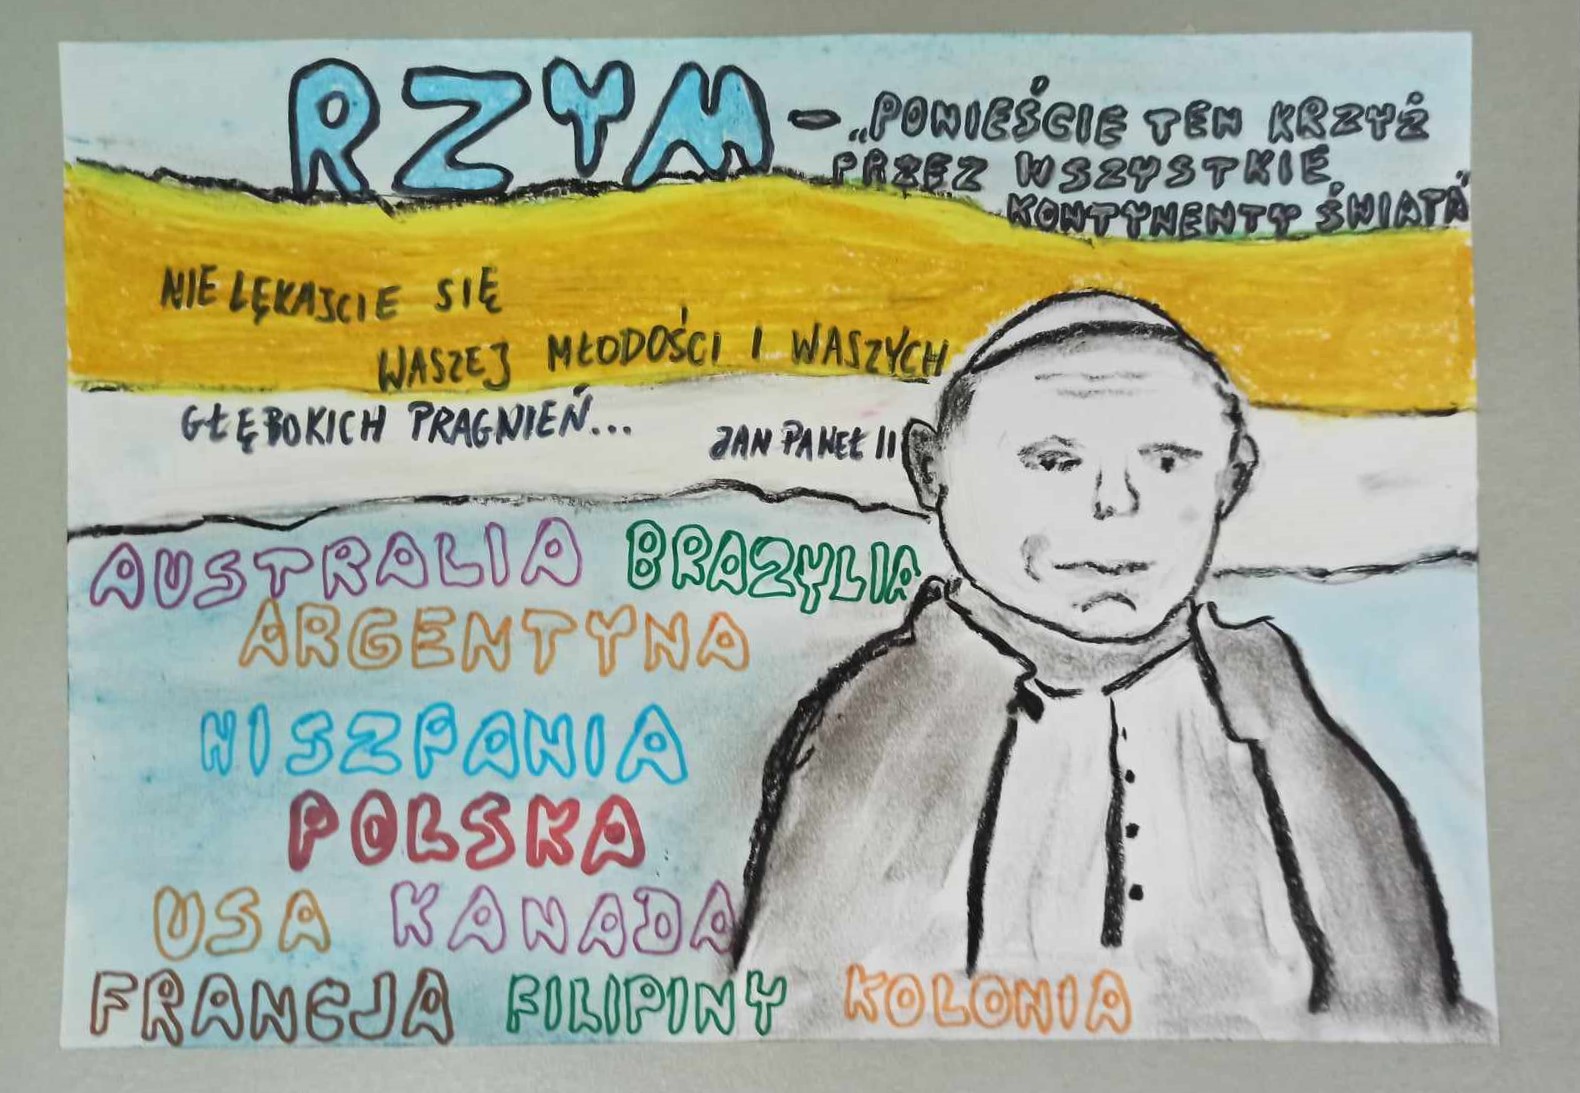 RZYM - „PONIEŚCIE TEN KRZYŻ
PRZEZ WSZYSTKIE
KONTYNENTY ŚWIATA"
NIE LĘKAJCIE SIĘ
WASZEJ MŁODOŚCI I WASZYCH
GŁĘBOKICH PRAGNIEŃ...
JAN PAWEŁ II
AUSTRALIA BRAZYLIA
ARGENTYNA
HISZPANIA
POLSKA
USA KANADA
FRANCJA FILIPINY KOLONIA